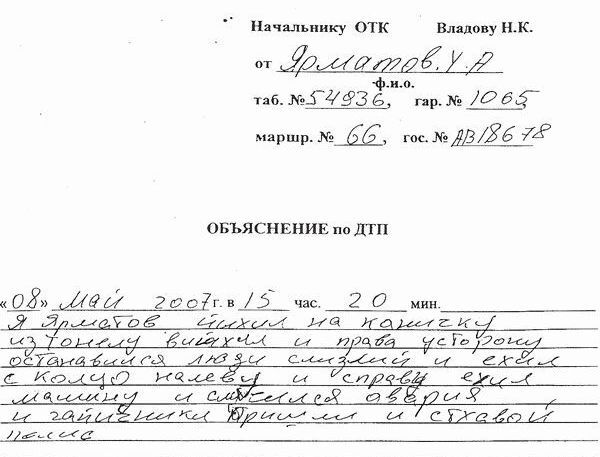 Начальнику ОТК Владову Н.К.
от Ярматов.У.А
ф.и.о.
таб. № 54936, гар. № 1065
маршр. № 66, гос. № АВ18678
ОБЪЯСНЕНИЕ по ДТП
«08» май 2007г. в 15 час. 20 мин.
я Ярматов йихил на каничку
из тонелу виихил и права усторону
останавился люзи слизлий и ехил
с колцо налеву и справу ехил
машину и случился авария,
и гайичники пришли и стхавой
полис